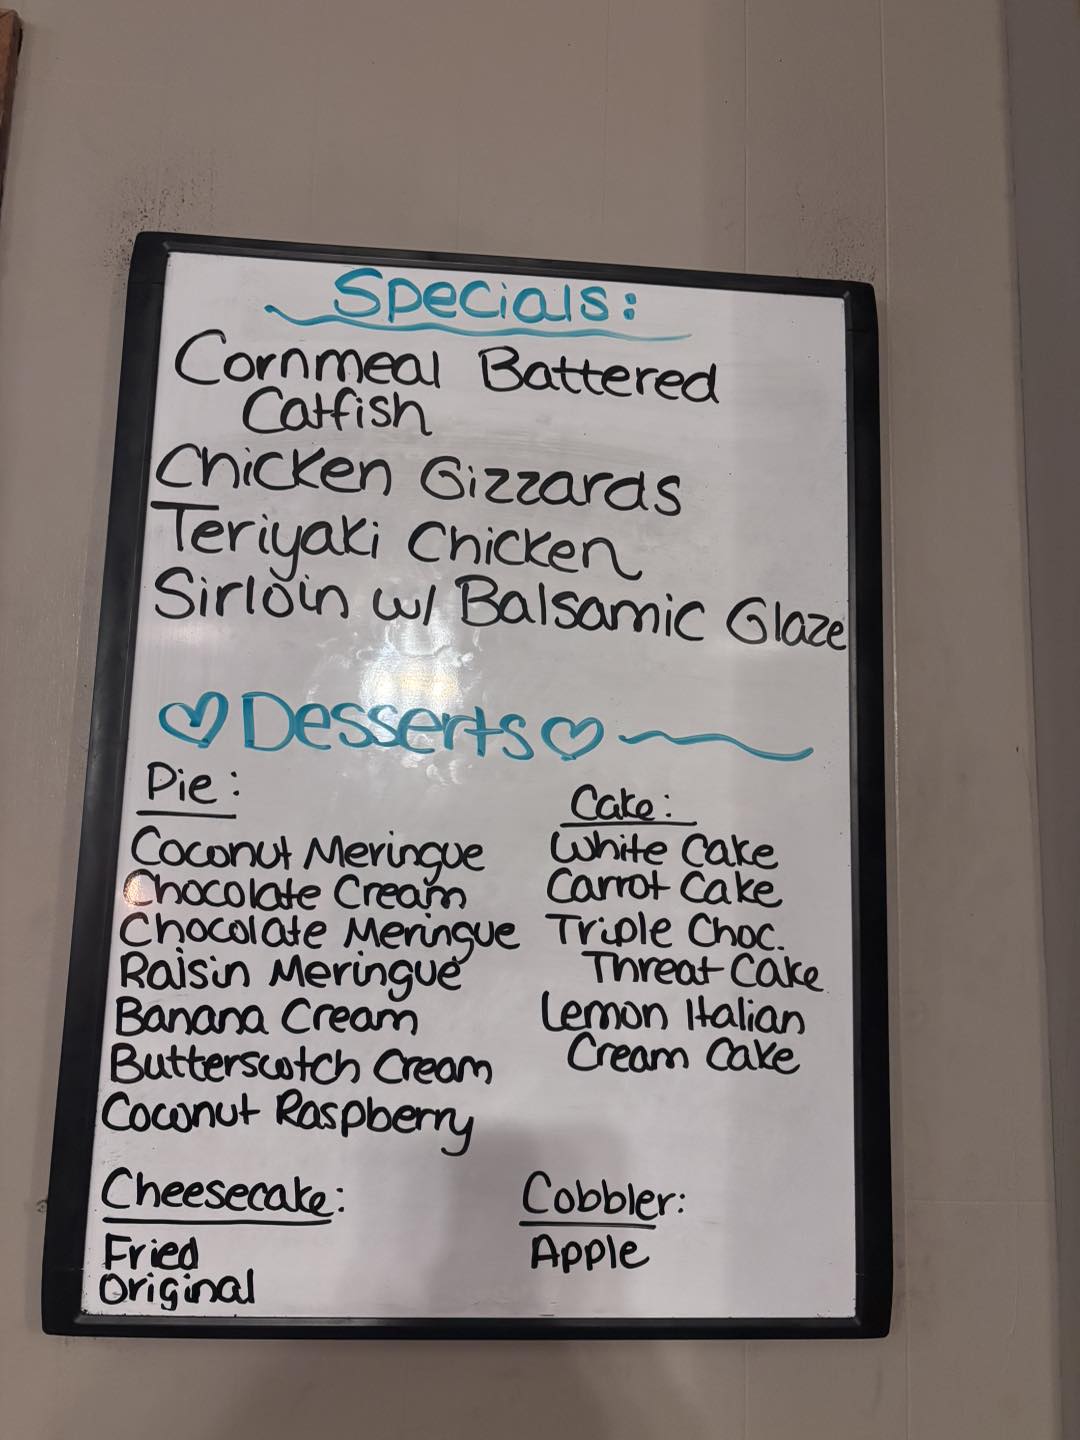 Specials:
Cornmeal Battered
Catfish
Chicken Gizzards
Teriyaki Chicken
Sirloin w/ Balsamic Glaze
Desserts
Pie:
Coconut Meringue
Chocolate Cream
Chocolate Meringue
Raisin Meringue
Banana Cream
Butterscotch Cream
Coconut Raspberry
Cake:
White Cake
Carrot Cake
Triple Choc.
Threat Cake
Lemon Italian
Cream Cake
Cheesecake:
Fried
Original
Cobbler:
Apple